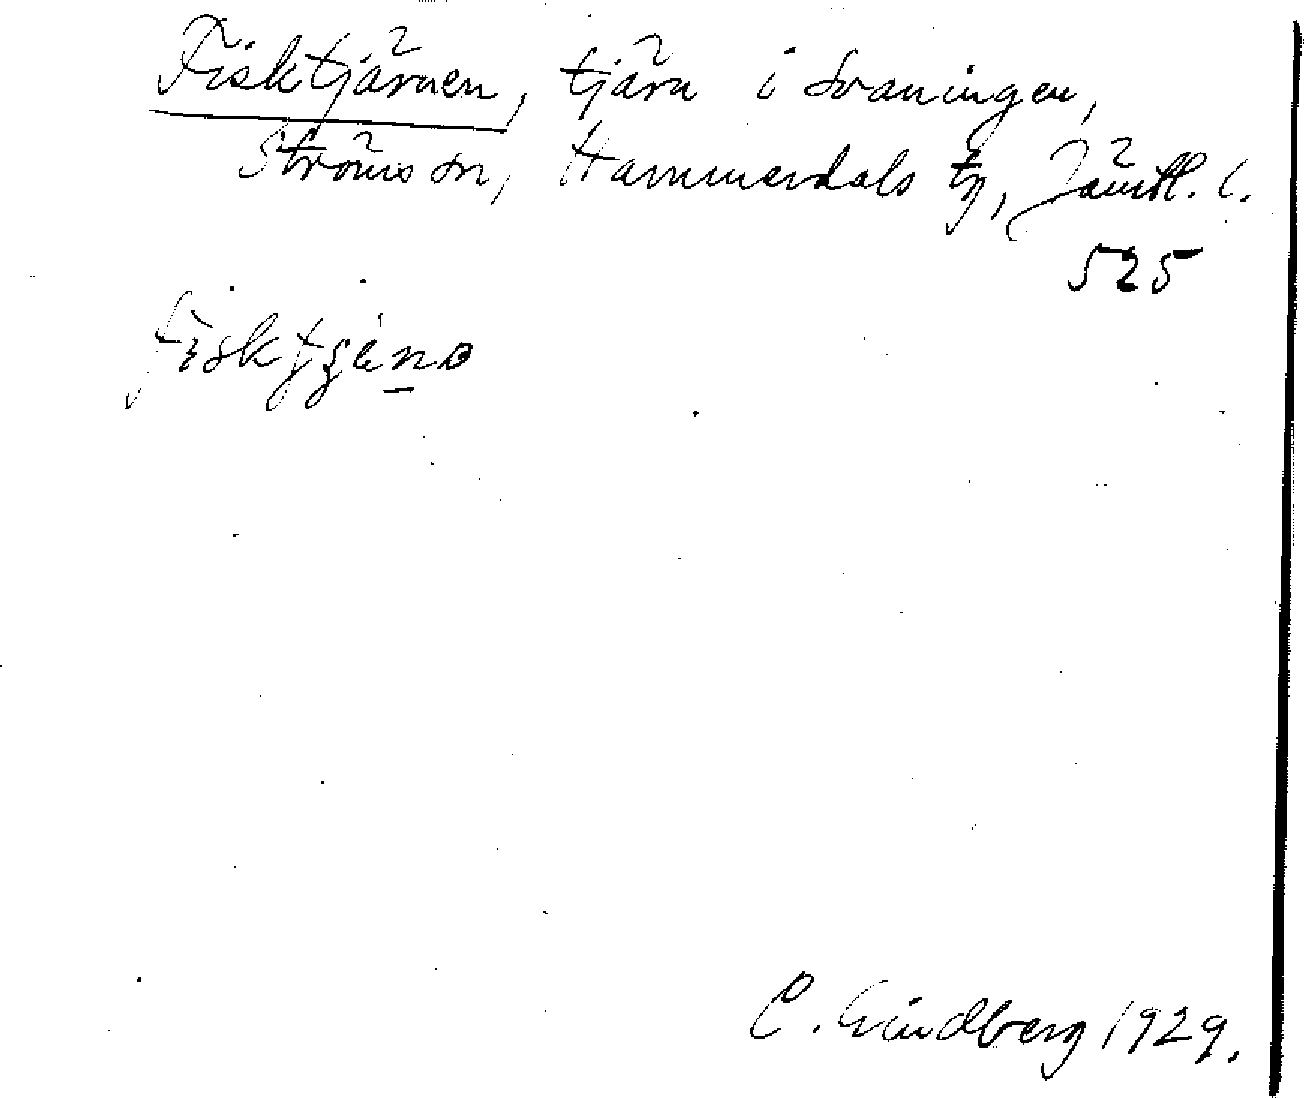 Fisktjärnen, tjärn i Svaningen,
Ströms sn, Hammerdals tg, Jämtl. l.
525
C. Lindberg 1929.